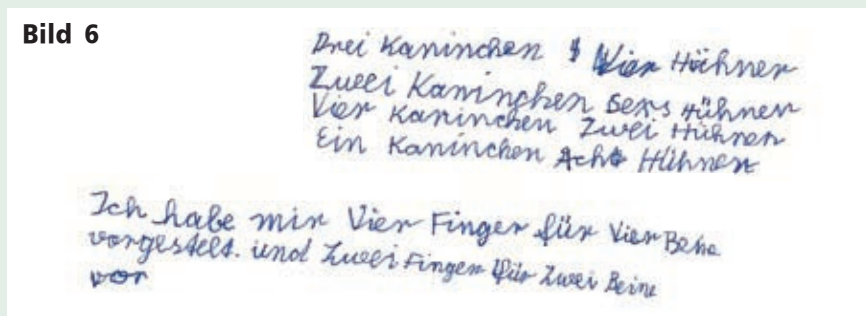 Bild 6
Drei Kaninchen Vier Hühner
Zwei Kaninchen Sexs Hühner
Vier Kaninchen Zwei Hühner
Ein Kaninchen Acht Hühner
Ich habe mir Vier Finger für Vier Beine
vorgestelt. und Zwei Finger für Zwei Beine
vor